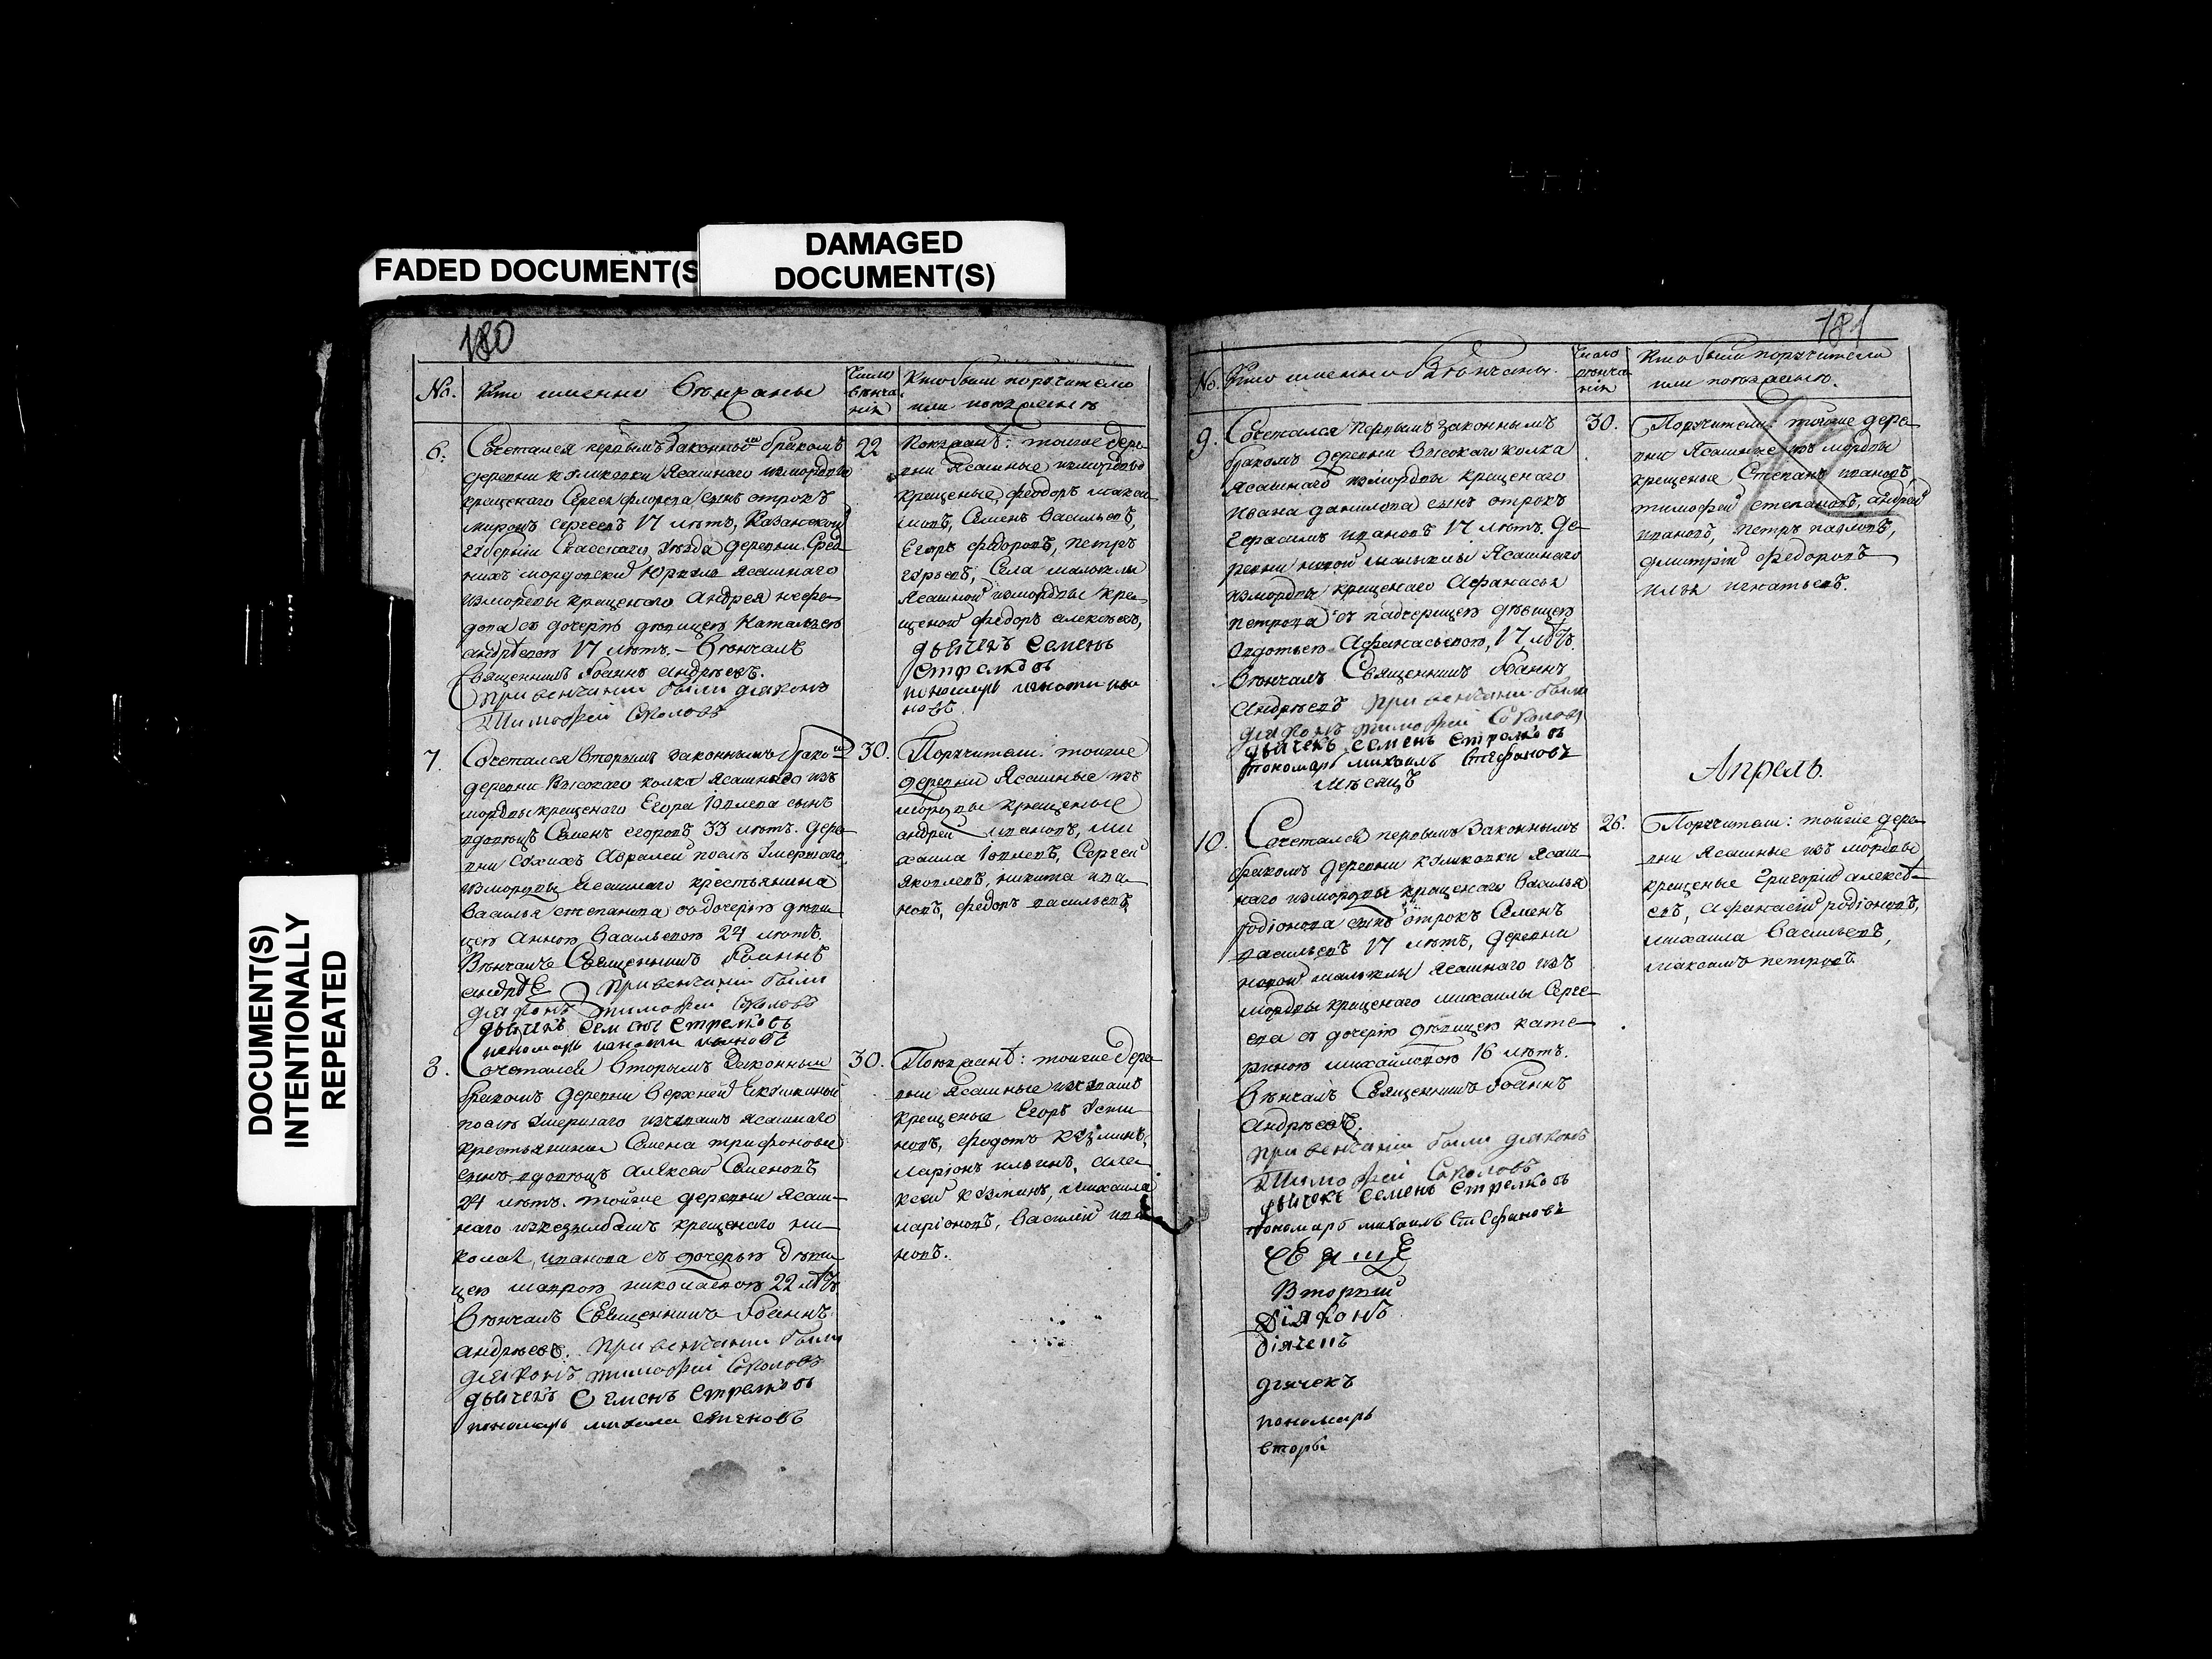 FADED DOCUMENT(S
DAMAGED
DOCUMENT(S)
DOCUMENT(S)
INTENTIONALLY
REPEATED
180
No.
Кто именно Венчаны
Число
венча
нія
Кто были поручители
или поѣзжаны
6.
Сочетался первымъ законнымъ бракомъ
деревни Кулик Ясашнаго измордвы
крещенаго Сергея сынъ отрокъ
миронъ сергеевъ 17 лѣтъ, Казанской
губерніи Спасскаго уѣзда деревни Сред
нихъ мордовски Юркуль Ясашнаго
измордвы крещенаго Андрея нефе
дова съ дочерью дѣвицею Натальею
андрѣевою 17 лѣтъ. – Вѣнчалъ
Священникъ Іоаннъ андрѣевъ.
При венчании были диаконъ
Тимофей Соколовъ
22
Поѣзжанѣ: тойже дере
вни Ясашные измордвы
крещеные, феодоръ макси
мовъ, Семенъ Васильевъ,
Егоръ федоровъ, Петръ
гурьевъ, Села малыклы
Ясашной измордвы кре
щеной федоръ алексѣевъ,
дьячекъ Семенъ
Стрелковъ
пономарь игнати ива
новъ
7.
Сочетался вторымъ законнымъ брако
деревни Высокаго колка Ясашнаго изъ
мордвы крещенаго Егора Іовлева сынъ
вдовецъ Семенъ егоровъ 33 лѣтъ. дере
вни Сухихъ Авралей послѣ умершаго
измордвы Ясашнаго крестьянина
Василья степанова съ дочерью дѣви
цею Анною Васильевою 24 лѣтъ.
Вѣнчалъ Священникъ Іоаннъ
андрѣе При венчании были
диаконъ тимофей Соколовъ
дьячекъ Семенъ Стрелковъ
пономарь игнати ивановъ
30.
Поручители: тойже
деревни Ясашные изъ
мордвы крещеные
андрей ивановъ, ми
хаила Іовлевъ, Сергей
Яковлевъ, никита ива
новъ, федоръ васильевъ,
8.
Сочетался вторымъ Законным
бракомъ деревни Верхней
послѣ умершаго изчувашъ ясашнаго
крестьянина Семена трифонова
сынъ вдовецъ алексѣй Семеновъ
24 лѣтъ. тойже деревни ясаш–
наго изкезылбашъ крещенаго ни
колая иванова съ дочерью дѣви
цею маврою николаевою 22 лѣтъ.
Вѣнчалъ Священникъ Іоаннъ
андрѣевъ. При венчании были
диаконъ тимофей Соколовъ
дьячекъ Семенъ Стрелковъ
пономарь михаила
30.
Поѣзжанѣ: тойже дере
вни Ясашные изчувашъ
крещеные Егоръ усти
новъ, федотъ кузминъ,
ларіонъ ильинъ, але
ксей кузминъ, михаила
ларіоновъ, василій ива
новъ.
181
No.
Кто именно Вѣнчаны.
Число
вѣнча
нія
Кто были поручители
или поѣзжаны.
9.
Сочетался первымъ законнымъ
бракомъ деревни Высокаго колка
Ясашнаго измордвы крещенаго
Ивана данилова сынъ отрокъ
Герасимъ ивановъ 17 лѣтъ. де–
ревни новой малыклы Ясашнаго
измордвы крещенаго Афанасья
петрова съ падчерицею дѣвицею
Авдотьею Афанасьевою, 17 лѣтъ.
Вѣнчалъ Священникъ Іоаннъ
Андрѣевъ При венчании были
диаконъ тимофей Соколовъ
дьячекъ Семенъ Стрелковъ
пономарь михаилъ Стефановъ
30.
Поручители: тойже дере
вни Ясашные изъ мордвы
крещеные Степанъ ивановъ,
тимофей степановъ, андрей
ивановъ, петръ павловъ,
димитрій федоровъ
илья игнатьевъ.
Мѣсяцъ
Апрель.
10.
Сочетался первымъ Законнымъ
бракомъ деревни куликовки Ясаш
наго измордвы крещенаго Василья
родіонова сынъ отрокъ Семенъ
васильевъ 17 лѣтъ, деревни
новой малыклы Ясашнаго изъ
мордвы крещенаго михаилы Серге–
ева съ дочерью дѣвицею кате–
риною михайловою 16 лѣтъ.
Вѣнчалъ Священникъ Іоаннъ
андрѣевъ.
при венчании были диаконъ
Тимофей Соколовъ
дьячекъ Семенъ Стрелковъ
пономарь михаилъ Стефановъ
26.
Поручители: тойже дере
вни Ясашные изъ мордвы
крещеные Григорій алексѣ–
евъ, Афанасій родіоновъ,
михаила Васильевъ,
максимъ петровъ.
Вторый
Діяконъ
дьячекъ
пономарь
вторы